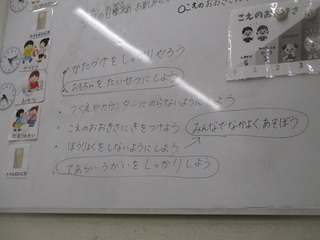 こえのおおきさ
かたづけを しっかりやろう
おもちゃを たいせつにしよう
つくえやカウンターに のらないようにしよう
こえのおおきさにきをつけよう
みんなでなかよくあそぼう
ぼうりょくをしないようにしよう
てあらい うがいを しっかりしよう